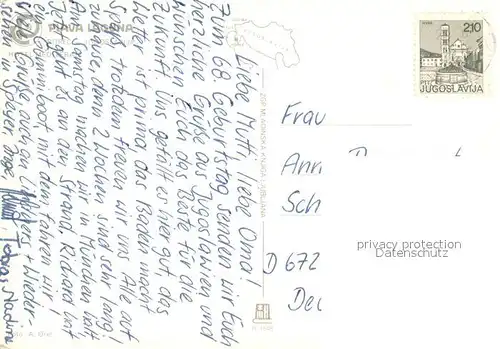 PLAVA LAGUNA
Liebe Mutti, liebe Oma!
Zum 68. Geburtstag senden wir Euch
herzliche Grüße aus Jugoslawien und
wünschen Euch das Beste für die
Zukunft. Uns gefällt es hier gut, das
Wetter ist prima, das Baden macht
Spaß, trotzdem freuen wir uns alle auf
zu Hause, denn 2 Wochen sind sehr lang!
Am Samstag machen wir in München halt
Jetzt geht es an den Strand, Richard hat
ein Gummiboot, mit dem fahren wir!
Viele Grüße auch an
in Speyer,
Tobias Nadine
2,10
JUGOSLAVIJA
Frau
Ann
Sch
D 672
privacy protection
Datenschutz